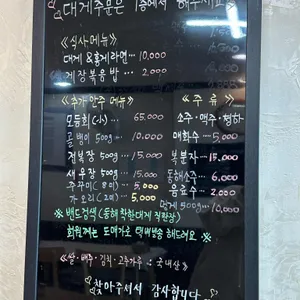 대게주문은 1층에서 해주세요
《식사메뉴》
대게&홍게라면… 10,000
게장볶음밥… 2,000
《추가안주메뉴》
모듬회(小) 65,000
골뱅이 500g… 10,000
전복장 500g… 15,000
새우장 500g… 15,000
쭈꾸미(8미) 5,000
가오리(2미) 5,000
《주류》
소주·맥주·청하
매화수… 5,000
복분자… 15,000
동해소주… 6,000
음료수… 2,000
먹게 500g… 10,000
※밴드검색(동해착한대게 직판장)
회원께는 도매가로 택배발송 해드려요※
《쌀·배추·김치·고추가루 : 국내산》
찾아주셔서 감사합니다